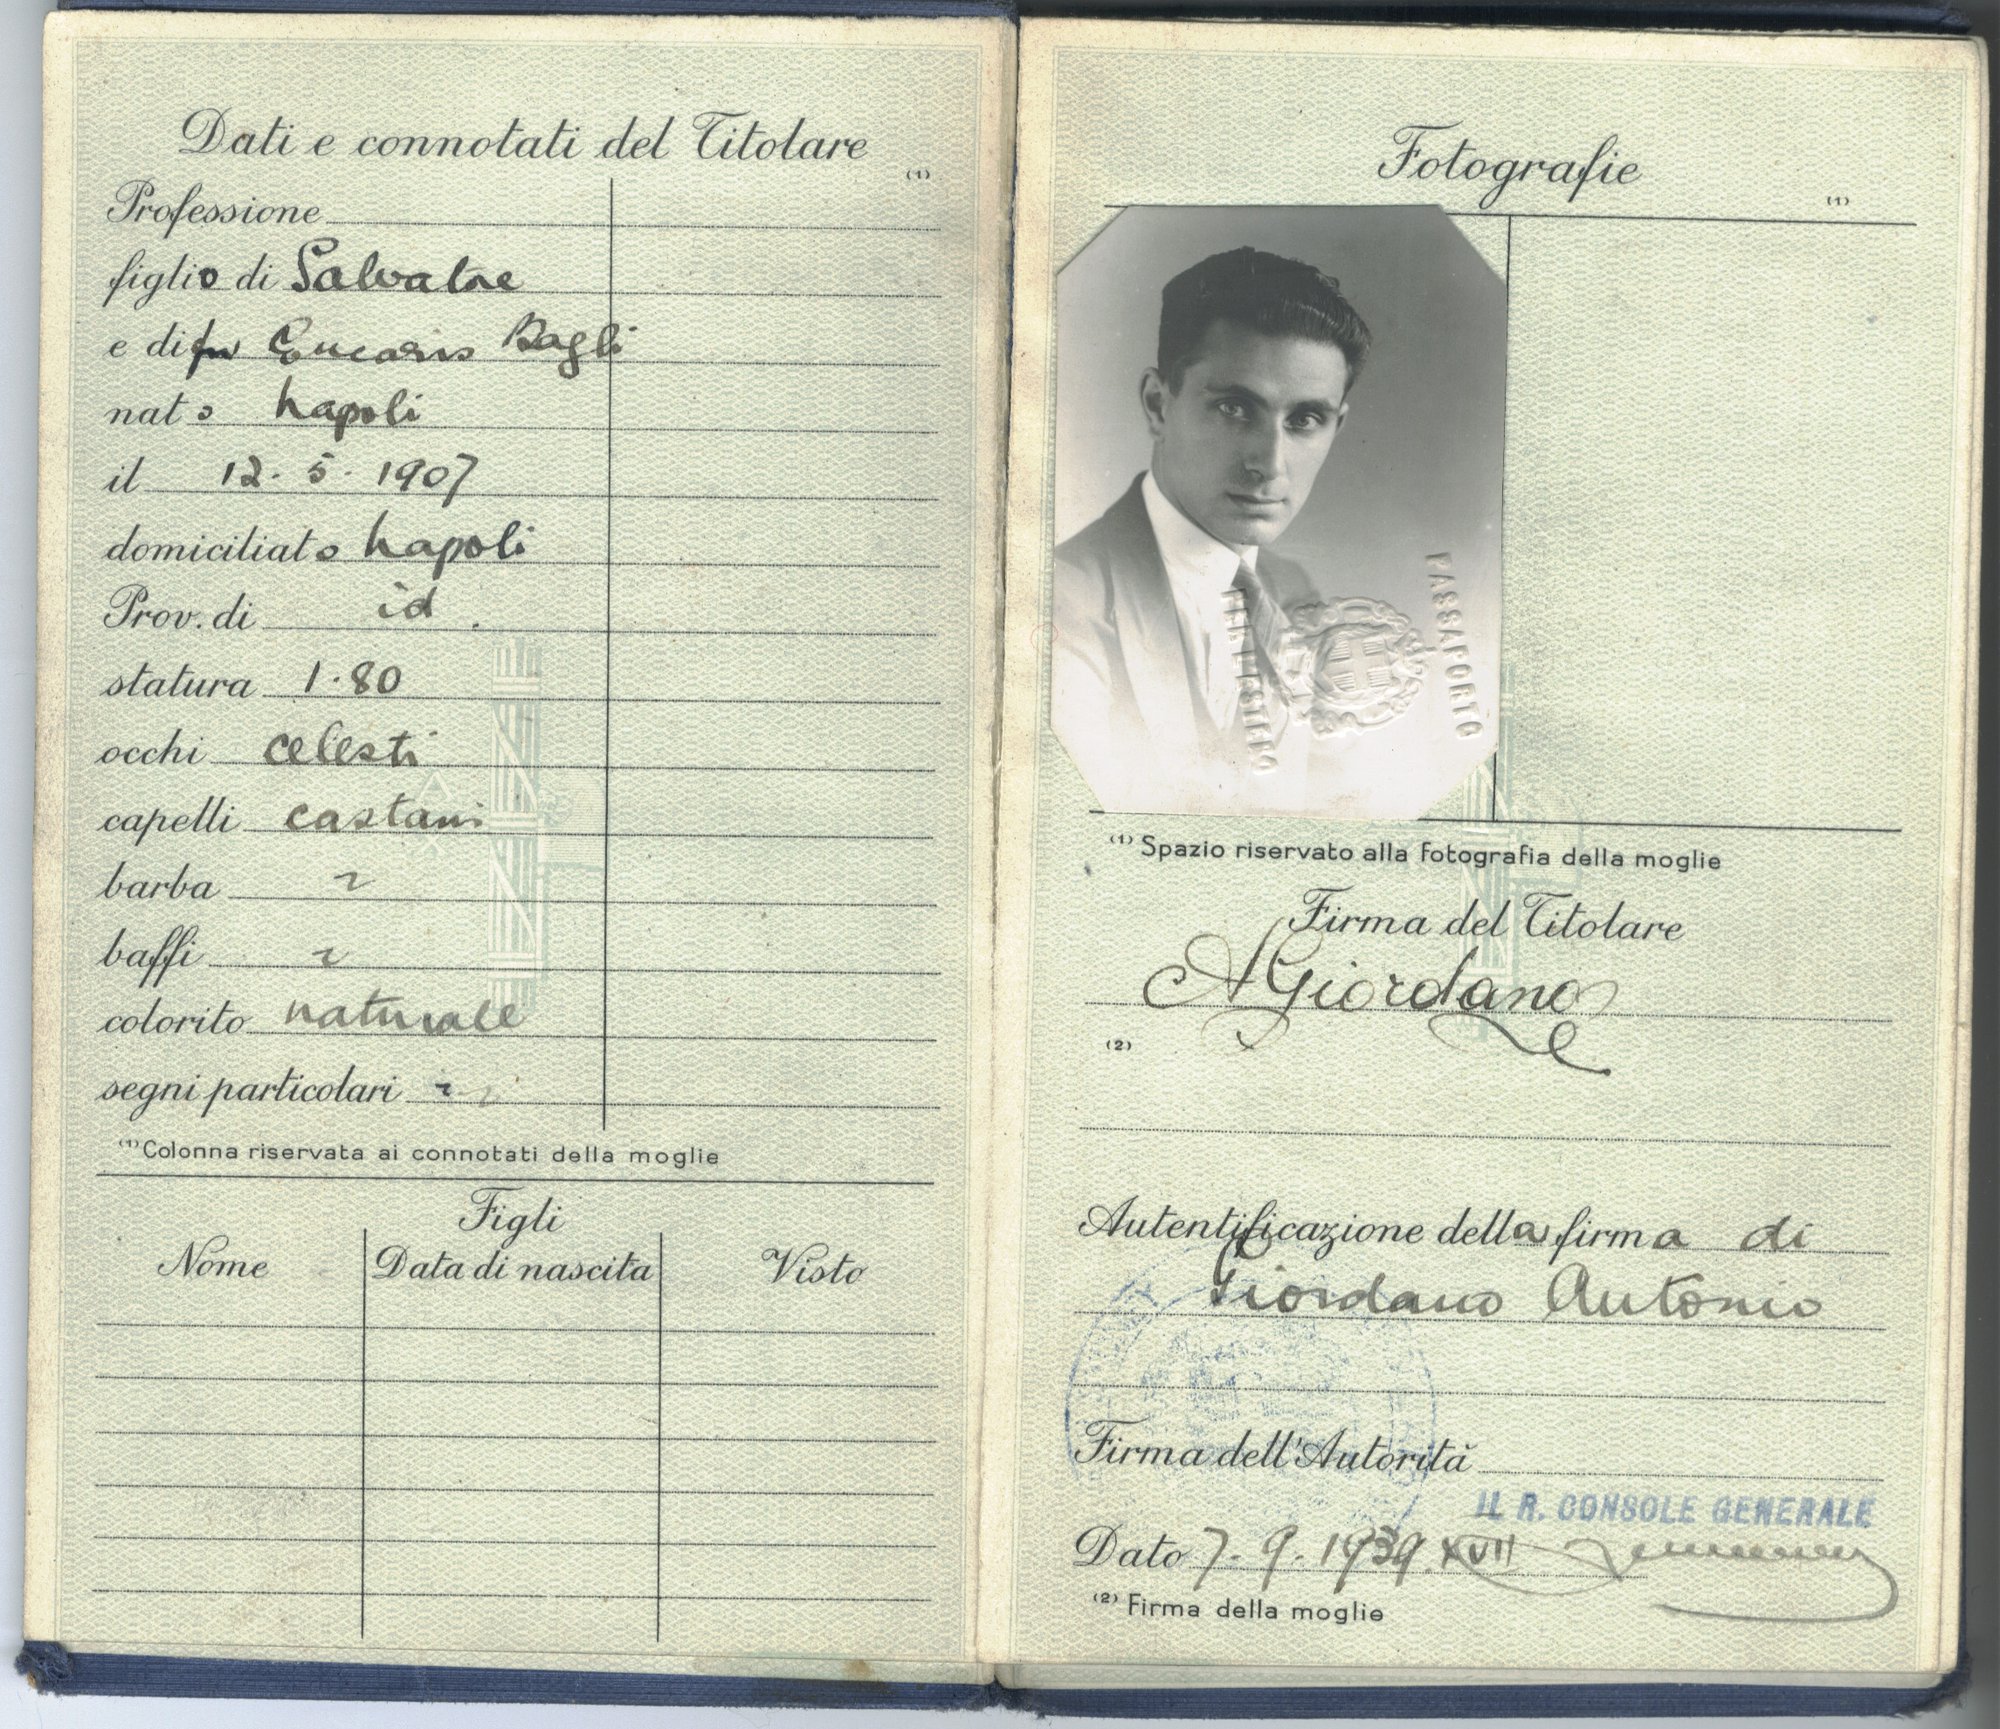 Dati e connotati del Titolare
(1)
Professione
figlio di Salvatore
e di fu Eucaris Bagli
nato Napoli
il 12. 5. 1907
domiciliato Napoli
Prov. di id.
statura 1.80
occhi celesti
capelli castani
barba
baffi
colorito naturale
segni particolari
(1) Colonna riservata ai connotati della moglie
Figli
Nome Data di nascita Visto
Fotografie
(1)
PASSAPORTO
PER L'ESTERO
(1) Spazio riservato alla fotografia della moglie
Firma del Titolare
AGiordano
(2)
Autentificazione della firma di
Giordano Antonio
Firma dell'Autorità
IL R. CONSOLE GENERALE
Dato 7. 9. 1939. XVII
(2) Firma della moglie